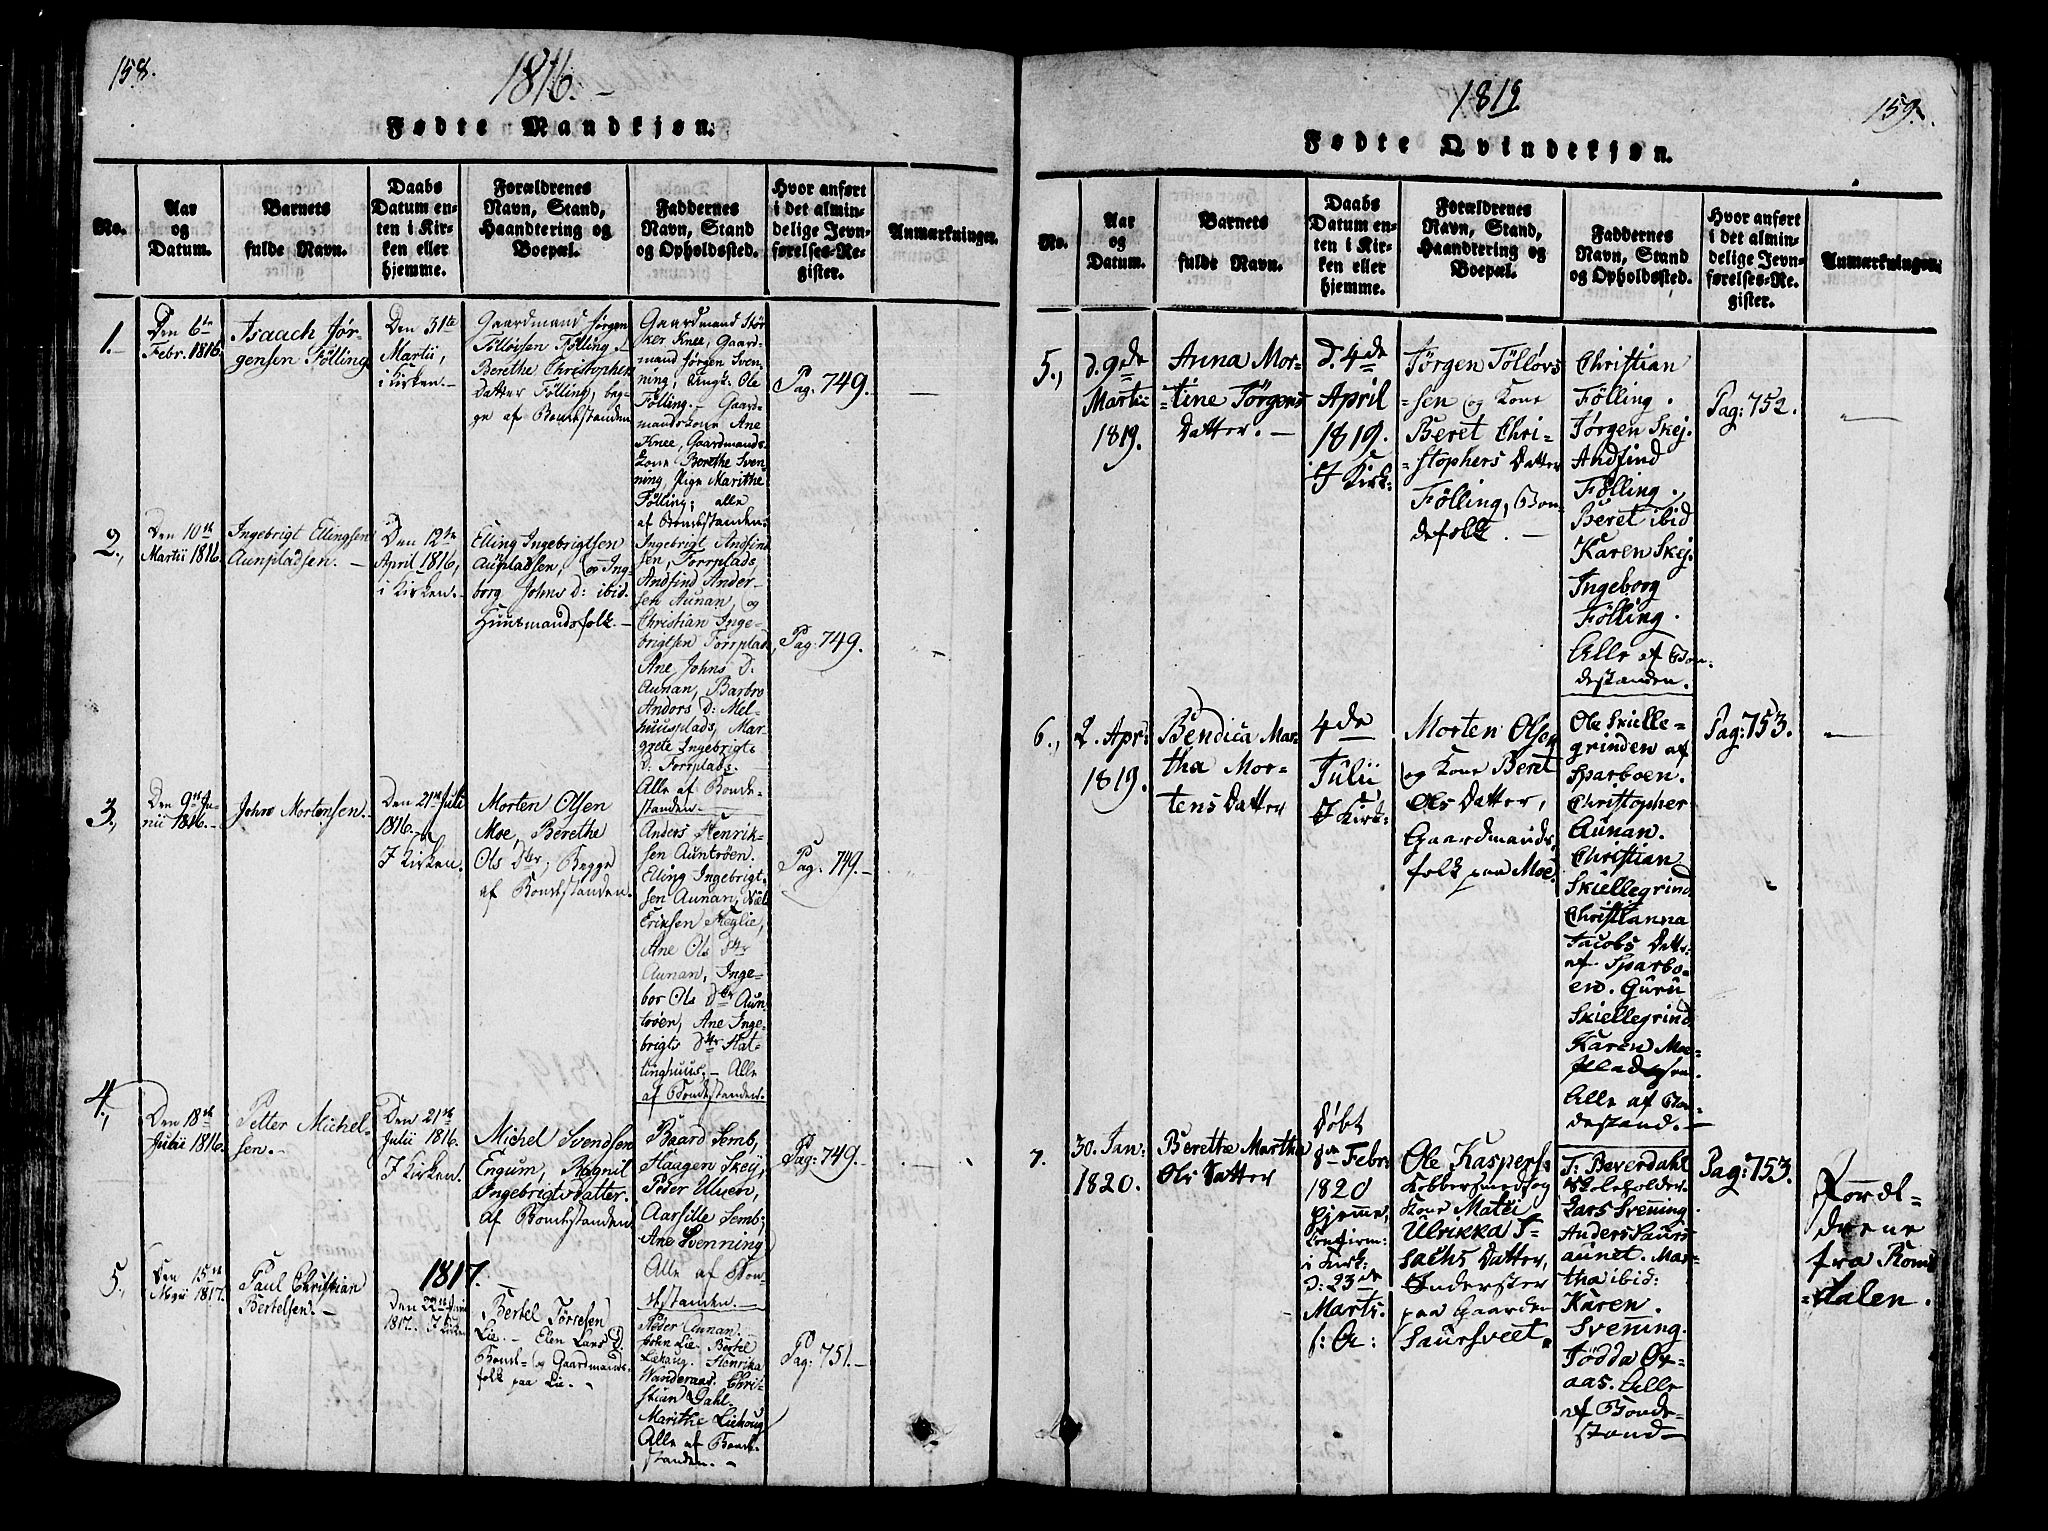 158.
1816.
Fødte Mandkjøn.
No.
Aar
og
Datum.
Barnets
fulde Navn.
Daabs
Datum en-
ten i Kir-
ken eller
hjemme.
Forældrenes
Navn, Stand,
Haandtering og
Boepæl.
Faddernes
Navn, Stand
og Opholdssted.
Hvor anført
i det almin-
delige Jevn-
førelses-Re-
gister.
Anmærkninger.
1.
Den 6te
Febr. 1816.
Isaach Jør-
gensen Følling
Den 31te
Martii,
i Kirken.
Gaardmand Jørgen
Tølløvsen Følling,
Berethe Christophers
Datter Følling, beg-
ge af Bondestanden
Gaardmand Stør
ker Knee, Gaard-
mand Jørgen Sven-
ning, Ungk. Ole
Følling. Gaard-
mandskone Ane
Knee, Gaardmands-
kone Berethe Sven
ning, Pige Marithe
Følling; alle
af Bondestanden.
Pag: 749.
2.,
Den 10de
Martii 1816.
Ingebrigt Ellingsen
Aunpladsen.
Den 12te
April 1816,
i Kirken.
Elling Ingebrigtsen
Aunpladsen, og Ing-
borg Johns D: ibid.
Huusmandsfolk.
Ingebrigt Andfind
sen, Forrplads,
Andfind Ander-
sen Aunan, og
Christian Inge-
brigtsen Forrplads,
Ane Johns D.
Aunan, Barbro
Andors D: Mel-
huusplads, Mar-
grete Ingebrigts
D: Forrplads.
Alle af Bonde-
standen.
Pag: 749.
3.,
Den 9de Ju-
nii 1816.
John Mortensen.
Den 21de Juli
1816.
I Kirken.
Morten Olsen
Moe, Berethe
Ols Dter; Begge
af Bondestanden.
Anders Henrik-
sen Auntrøen.
Elling Ingebrigt-
sen Aunan, Niels
Eriksen Heglie,
Ane Ols Dtr
Aunan, Inge-
bor Ols Dtr Aun
trøen, Ane Inge-
brigts Dtr Hat-
linghuus. Alle
af Bondestanden.
Pag: 749.
4.,
Den 18de
Julii 1816.
Petter Michel-
sen.
Den 21de
Julii 1816.
I Kirken.
Michel Svendsen
Engum, Ragnil
Ingebrigtsdatter.
af Bondestanden
Baard Semb,
Haagen Skey,
Peder Uluen,
Aarsille Semb,
Ane Svenning
Alle af Bon-
destanden.
Pag: 749.
1817.
5.,
Den 15de
Maji 1817.
Paul Christian
Bertelsen.
Den 22de Junii
1817. I Kirken
Bertel Tørresen
Lie. Elen Lars D.
Bonde- og Gaardmands-
folk paa Lie.
Peder Aunan.
John Lie. Bertel
Liehaug. Henrika
Wanderaas. Chri-
stian Dahl.
Marithe Liehoug
Alle af Bonde-
standen.
Pag: 751.
1819
159.
Fødte Qvindekjøn.
No.
Aar
og
Datum.
Barnets
fulde Navn.
Daabs
Datum en-
ten i Kir-
ken eller
hjemme.
Forældrenes
Navn, Stand,
Haandtering og
Boepæl.
Faddernes
Navn, Stand
og Opholdssted.
Hvor anført
i det almin-
delige Jevn-
førelses-Re-
gister.
Anmærkninger.
5.,
d. 9de
Martii
1819.
Anna Mor-
tine Jørgens
Datter.
D. 4de
April
1819.
I Kirk:
Jørgen Tølløvs
sen og Kone
Beret Chri-
stophers Datter
Følling, Bon-
defolk.
Christian
Følling.
Jørgen Skej.
Andfind
Følling.
Beret ibid
Karen Skej.
Ingeborg
Følling.
Alle af Bon-
destanden.
Pag: 752.
6.,
2. Apr:
1819.
Bendica Mar-
tha Mor-
tens Datter
4de
Julii
I Kirk:
Morten Olsen
og Kone Beret
Ols Datter,
Gaardmands
folk paa Moe.
Ole Skielle-
grinden af
Sparboen.
Christopher
Aunan.
Christian
Skiellegrind
Christianna
Jacobs Datt:
af Sparbo-
en. Guru
Skiellegrind
Karen Moe-
Alle af Bon-
destand.
Pag: 753.
7.
30. Jan:
1820.
Berethe Martha
Ols Datter
Døbt
8de Febr:
1820
hjemme,
Confirm:
i Kirk:
D: 23de
Marts.
s: A:
Ole Kaspers:
Kobbersmed og
Kone Matii
Ulrikka I-
sachs Datter,
Inderster
paa Gaarden
Saursveet
J: Beverdahl
Skoleholder.
Lars Svenning.
Anders Saurs
aunet. Mar-
tha ibid:
Karen
Svenning.
Jødda Ox-
aas. Alle
af Bonde-
stand
Pag: 753.
Foræl-
drene
fra Roms
dalen.